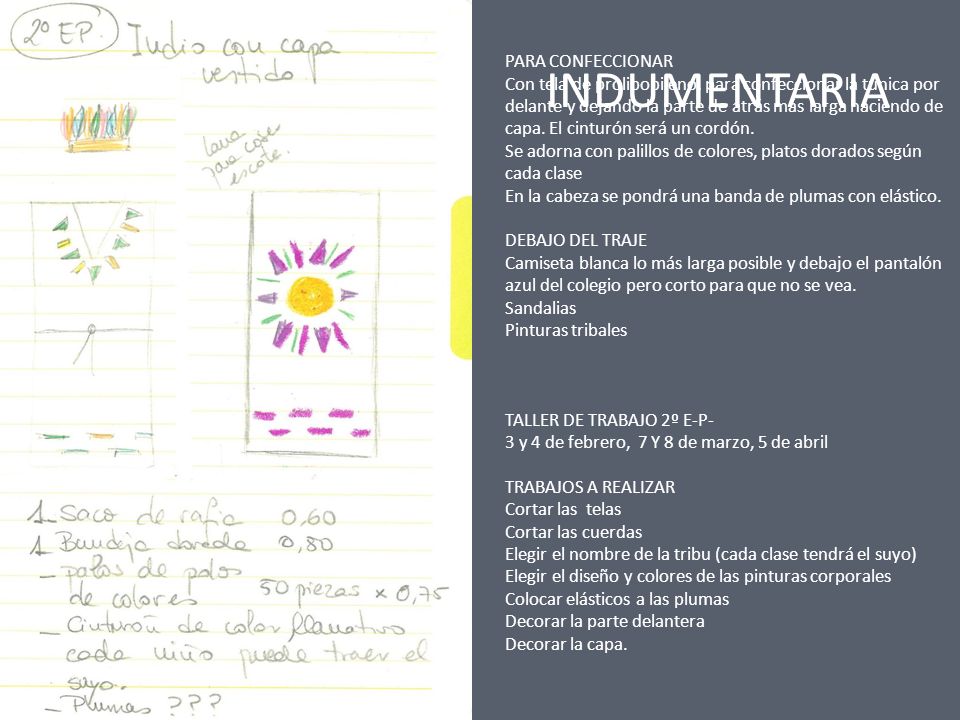 2º EP.
Indio con capa
vestido
lana
para coser
escote.
1 - Saco de rafia 0,60
1 Bandeja dorada 0,80
- palos de polos
de colores 50 piezas x 0,75
- Cinturón de color llamativo
cada niño puede traer el
suyo.
- Plumas ???
INDUMENTARIA
PARA CONFECCIONAR
Con tela de prolipopileno, para confeccionar la túnica por
delante y dejando la parte de atrás más larga haciendo de
capa. El cinturón será un cordón.
Se adorna con palillos de colores, platos dorados según
cada clase
En la cabeza se pondrá una banda de plumas con elástico.
DEBAJO DEL TRAJE
Camiseta blanca lo más larga posible y debajo el pantalón
azul del colegio pero corto para que no se vea.
Sandalias
Pinturas tribales
TALLER DE TRABAJO 2º E-P-
3 y 4 de febrero, 7 Y 8 de marzo, 5 de abril
TRABAJOS A REALIZAR
Cortar las telas
Cortar las cuerdas
Elegir el nombre de la tribu (cada clase tendrá el suyo)
Elegir el diseño y colores de las pinturas corporales
Colocar elásticos a las plumas
Decorar la parte delantera
Decorar la capa.